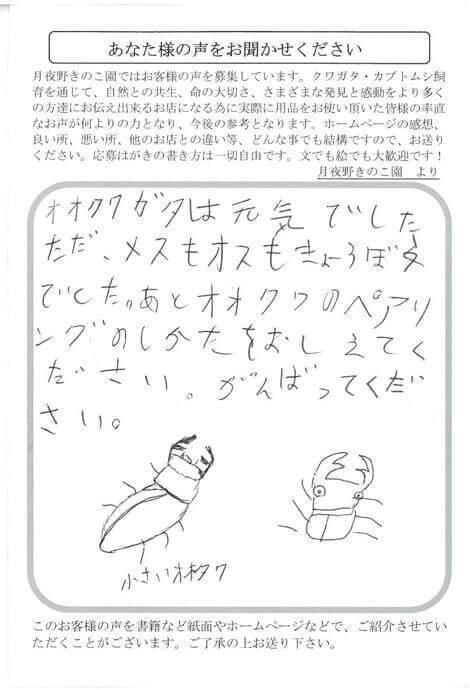 あなた様の声をお聞かせください
月夜野きのこ園ではお客様の声を募集しています。クワガタ・カブトムシ飼
育を通じて、自然との共生、命の大切さ、さまざまな発見と感動をより多く
の方達にお伝え出来るお店になる為に実際に用品をお使い頂いた皆様の率直
なお声が何よりの力となり、今後の参考となります。ホームページの感想、
良い所、悪い所、他のお店との違い等、どんな事でも結構ですので、お送り
ください。応募はがきの書き方は一切自由です。文でも絵でも大歓迎です！
月夜野きのこ園　より
オオクワガタは元気でした
ただ、メスもオスもきょうぼう
でした。あとオオクワのペアリ
ングのしかたをおしえてく
ださい。がんばってくだ
さい。
小さいオオクワ
このお客様の声を書籍など紙面やホームページなどで、ご紹介させてい
ただくことがございます。ご了承の上お送り下さい。